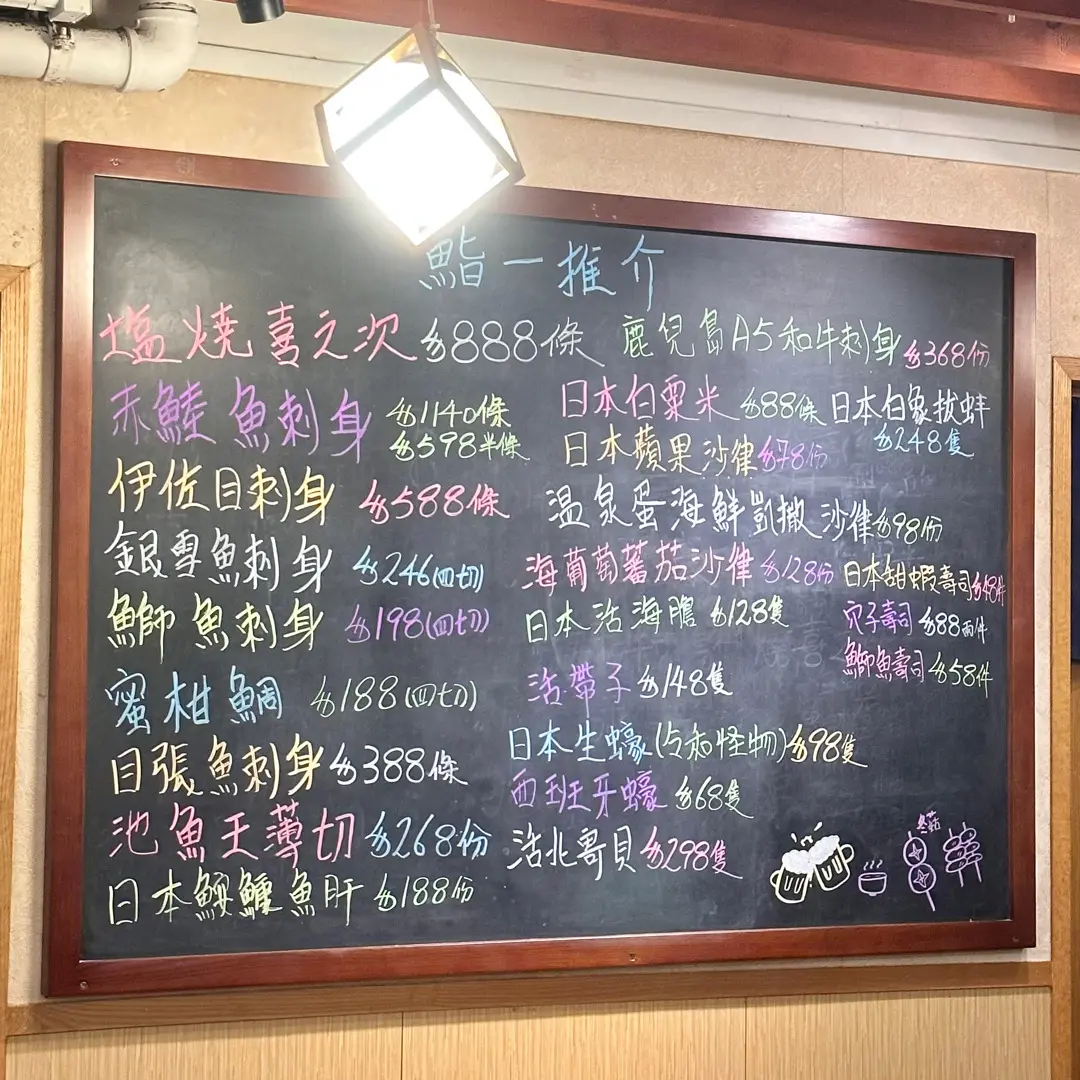 鮨一推介
塩燒喜之次 $888條
赤鯥魚刺身 $1140條
$598半條
伊佐目刺身 $588條
銀雪魚刺身 $246(四切)
鰤魚刺身 $198(四切)
蜜柑鯛 $188(四切)
目張魚刺身 $388條
池魚王薄切 $268份
日本鮟鱇魚肝 $188份
鹿兒島A5和牛刺身 $368份
日本白粟米 $88條
日本白象拔蚌
$248隻
日本蘋果沙律 $78份
温泉蛋海鮮凱撒沙律 $98份
海葡萄蕃茄沙律 $128份
日本甜蝦壽司 $48件
日本活海膽 $128隻
穴子壽司 $88兩件
鰤魚壽司 $58件
活帶子 $148隻
日本生蠔(令和怪物) $98隻
西班牙蠔 $68隻
活北寄貝 $298隻
冬菇